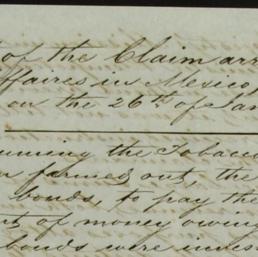 of the Claim arr
ffaires in Mexico,
on the 26th of Jan
unning the Tobacco
n farmed out, the
bonds, to pay the
rt of money owing
bonds were inves